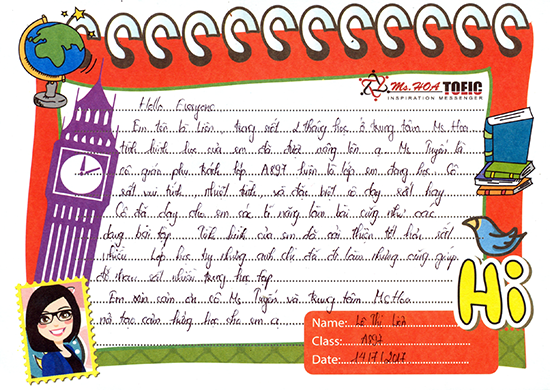 Ms. HOA TOEIC
INSPIRATION MESSENGER
Hello Everyone
Em tên là Liên, trong suốt 2 tháng học ở trung tâm Ms Hoa
tình hình học của em đã được nâng lên ạ. Ms Tuyến là
cô giáo phụ trách lớp A897 hiện là lớp em đang học. Cô
rất vui tính, nhiệt tình, và đặc biệt cô dạy rất hay.
Cô đã dạy cho em các kĩ năng làm bài cũng như các
dạng bài tập. Tình hình của em đã cải thiện tốt hơn rất
nhiều. Lớp học tuy nhưng anh chị đã đi làm nhưng cũng giúp
đỡ tham rất nhiều trong học tập.
Em xin cảm ơn cô Ms. Tuyến và trung tâm Ms Hoa
mà tạo cảm hứng học cho em ạ.
Hi
Name: Lê Thị Liên
Class: A897
Date: 14/7/2017